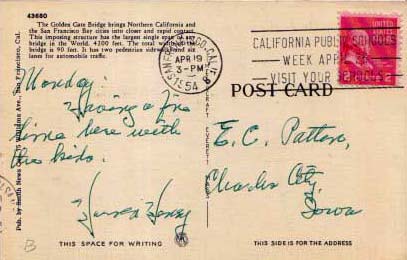 43680
The Golden Gate Bridge brings Northern California and
the San Francisco Bay cities into closer and rapid contact.
This imposing structure has the largest single span of any
bridge in the World. 4200 feet. The total width of the
bridge is 90 feet. It has two pedestrian sidewalks and six
lanes for automobile traffic.
SAN FRANCISCO, CALIF.
APR 19
3 - PM
1954
CALIFORNIA PUBLIC SCHOOLS
WEEK APR
VISIT YOUR SCHOOLS
UNITED STATES
POST CARD
Monday.
Having a fine
time here with
the kids.
E. C. Patton,
Charles City,
Iowa
THIS SPACE FOR WRITING
THIS SIDE IS FOR THE ADDRESS
B